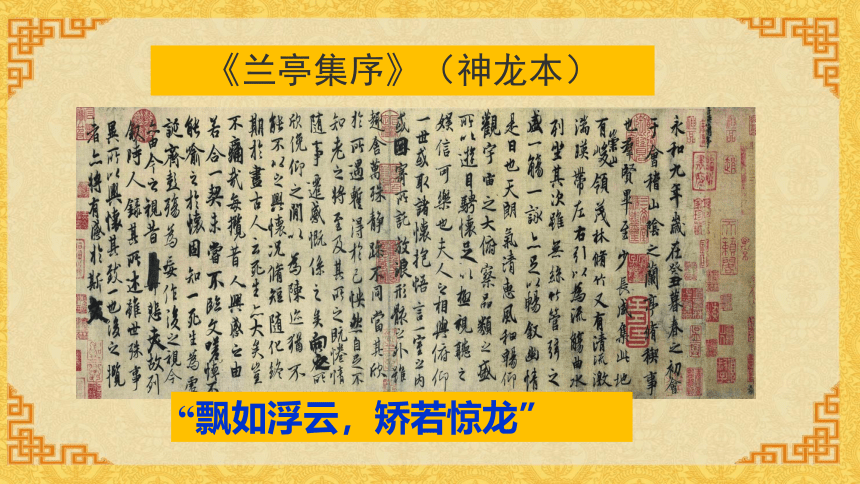 《兰亭集序》（神龙本）
永和九年歲在癸丑暮春之初會
于會稽山陰之蘭亭脩稧事
也羣賢畢至少長咸集此地
有崇山峻領茂林脩竹又有清流激
湍暎帶左右引以為流觴曲水
列坐其次雖無絲竹管弦之
盛一觴一詠亦足以暢敘幽情
是日也天朗氣清惠風和暢仰
觀宇宙之大俯察品類之盛
所以遊目騁懷足以極視聽之
娛信可樂也夫人之相與俯仰
一世或取諸懷抱悟言一室之內
或因寄所託放浪形骸之外雖
趣舍萬殊靜躁不同當其欣
於所遇蹔得於己怏然自足不
知老之將至及其所之既惓情
隨事遷感慨係之矣向之所
欣俛仰之閒以為陳迹猶不
能不以之興懷況脩短隨化終
期於盡古人云死生亦大矣豈
不痛哉每攬昔人興感之由
若合一契未嘗不臨文嗟悼不
能喻之於懷固知一死生為虛
誕齊彭殤為妄作後之視今
亦由今之視昔悲夫故列
敘時人錄其所述雖世殊事
異所以興懷其致一也後之攬
者亦將有感於斯文
“飘如浮云，矫若惊龙”